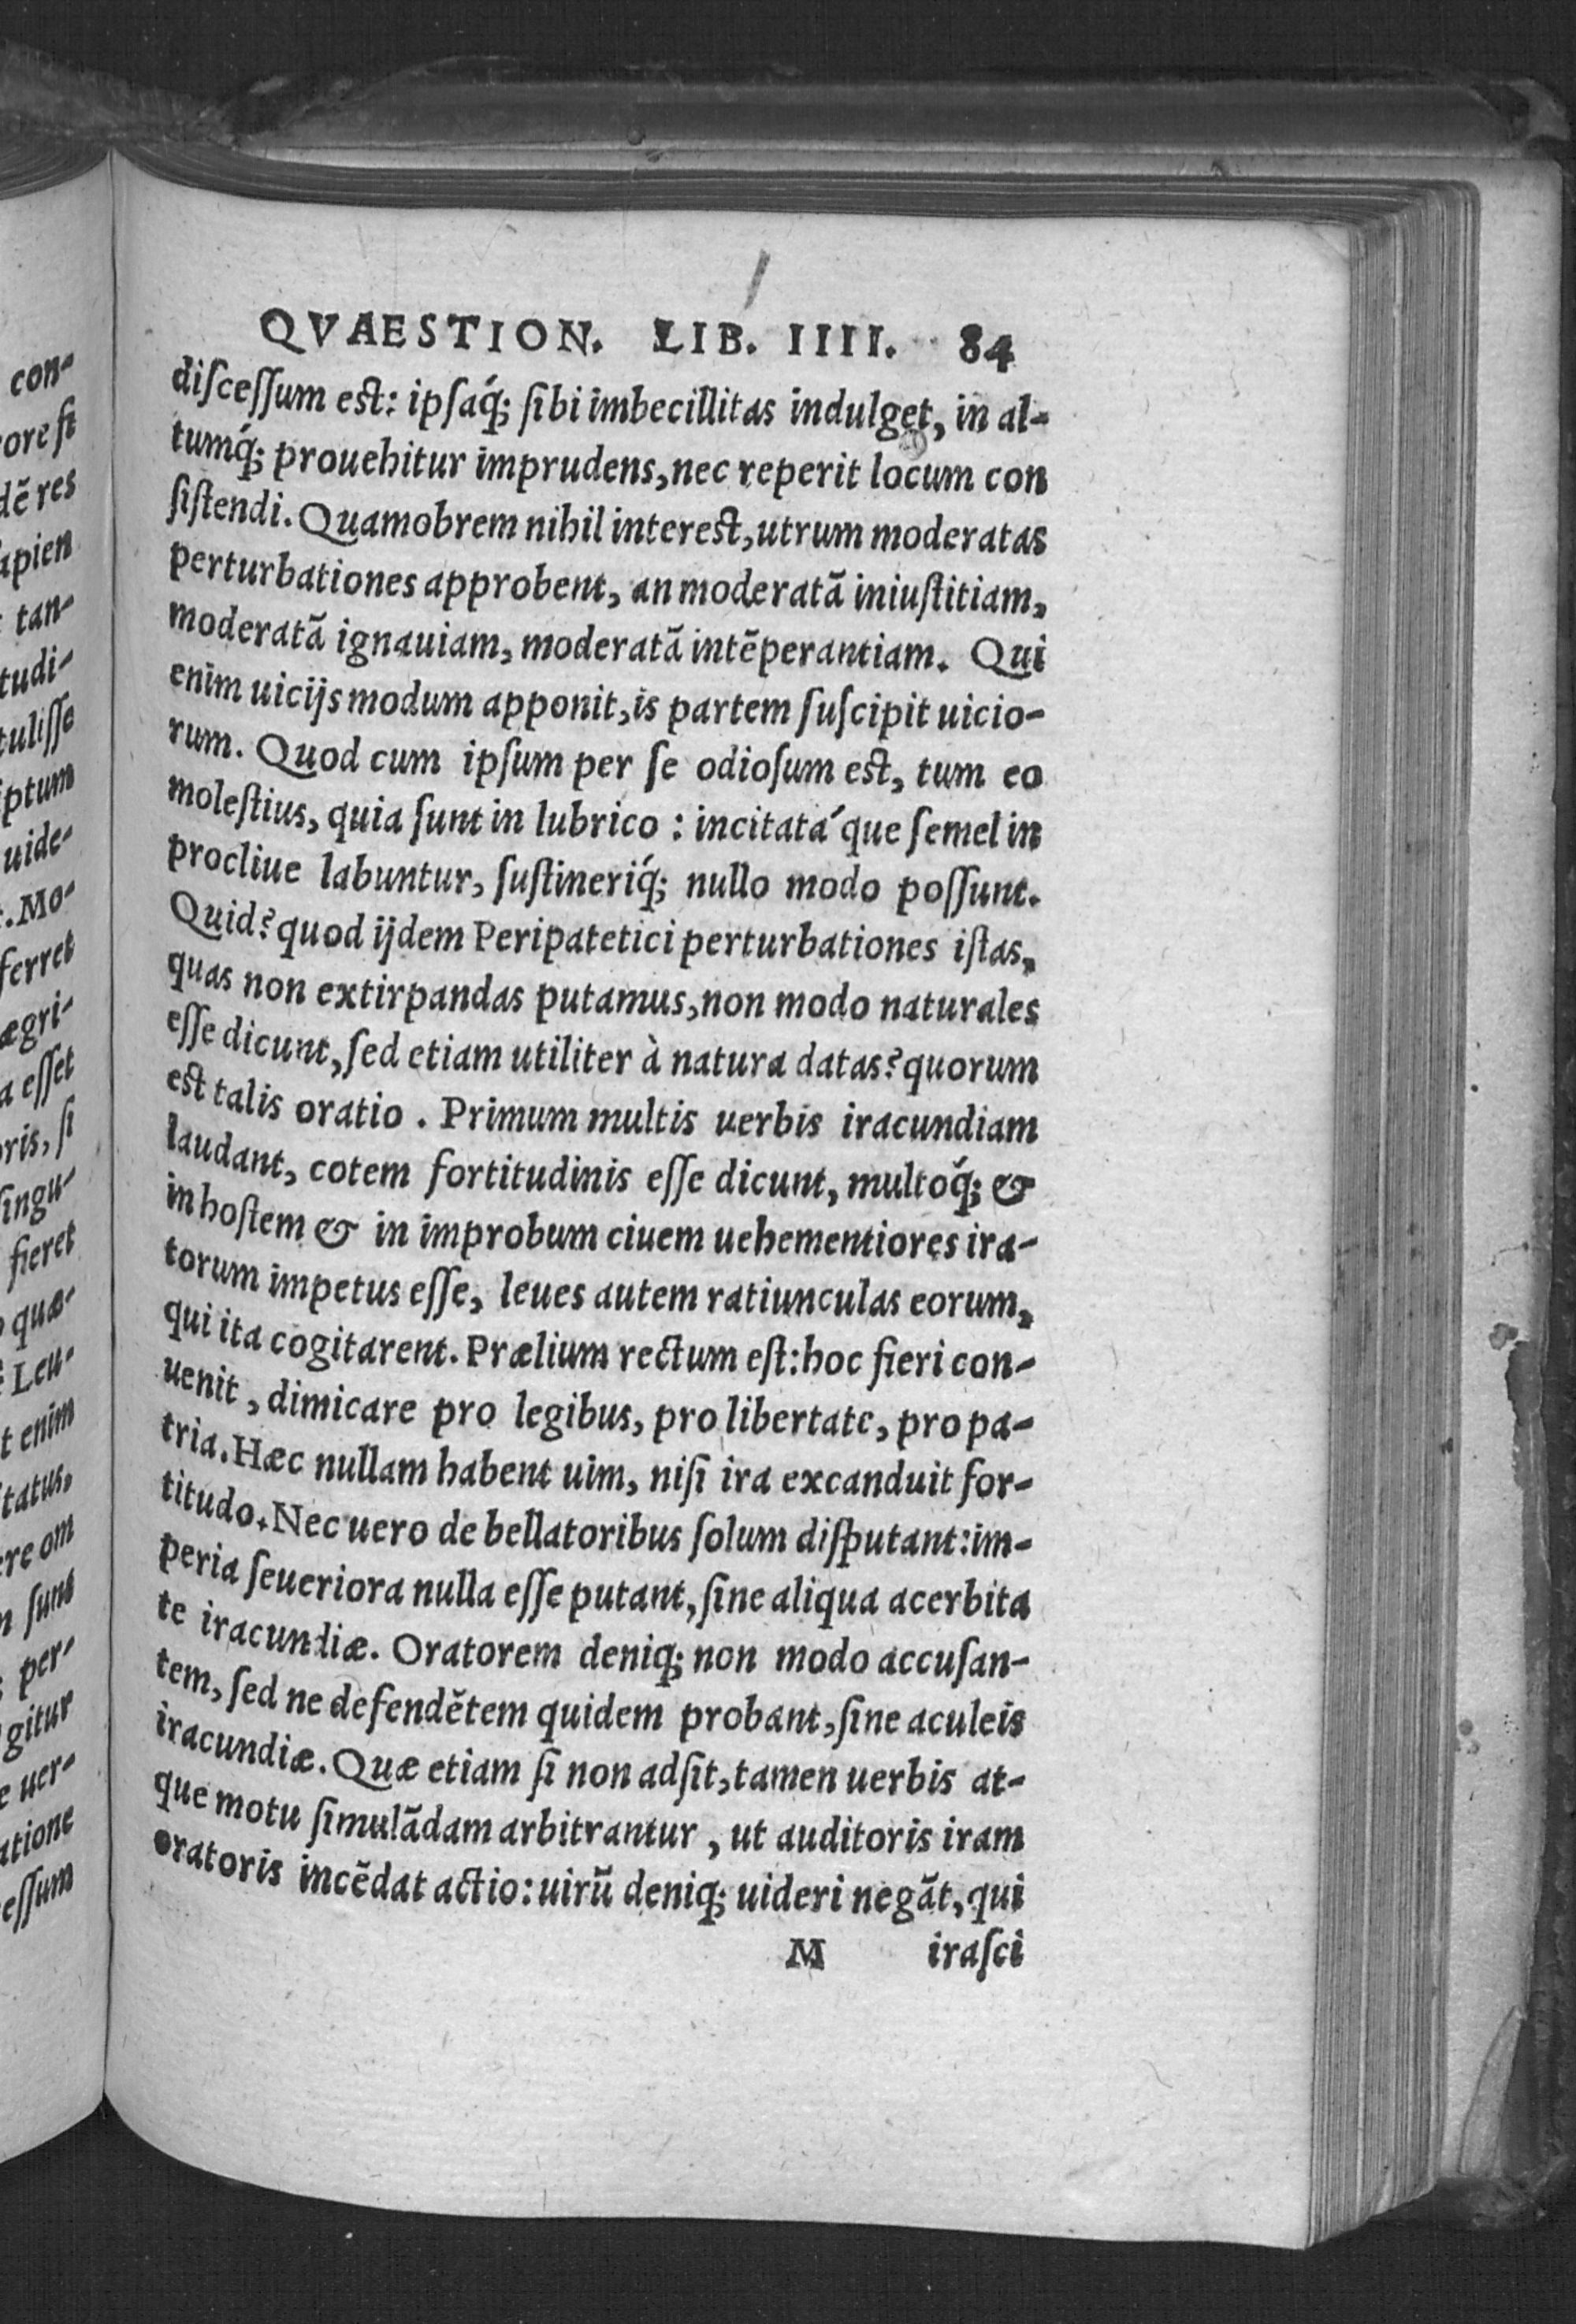 con-
ore ſi
dẽ res
apien
tan-
tudi-
tuliſſe
iptum
uide-
. Mo-
ferret
ægri-
a eſſet
oris, ſi
ſingu-
fieret
quæ-
Leu-
t enim
tatus,
re om
n ſunt
per-
gitur
e uer-
atione
eſſum
QVAESTION. LIB. IIII. 84
diſceſſum est: ipſaq́; ſibi imbecillitas indulget, in al-
tumq́; prouehitur imprudens, nec reperit locum con
ſiſtendi. Quamobrem nihil interest, utrum moderatas
perturbationes approbent, an moderatã iniuſtitiam,
moderatã ignauiam, moderatã intẽperantiam. Qui
enim uicijs modum apponit, is partem ſuſcipit uicio-
rum. Quod cum ipſum per ſe odioſum est, tum eo
moleſtius, quia ſunt in lubrico : incitatá que ſemel in
procliue labuntur, ſuſtineriq́; nullo modo poſſunt.
Quid? quod ijdem Peripatetici perturbationes iſtas,
quas non extirpandas putamus, non modo naturales
eſſe dicunt, ſed etiam utiliter à natura datas? quorum
est talis oratio . Primum multis uerbis iracundiam
laudant, cotem fortitudinis eſſe dicunt, multoq́; &
in hoſtem & in improbum ciuem uehementiores ira-
torum impetus eſſe, leues autem ratiunculas eorum,
qui ita cogitarent. Prælium rectum eſt: hoc fieri con-
uenit , dimicare pro legibus, pro libertate, pro pa-
tria. Hæc nullam habent uim, niſi ira excanduit for-
titudo. Nec uero de bellatoribus ſolum diſputant: im-
peria ſeueriora nulla eſſe putant, ſine aliqua acerbita
te iracundiæ. Oratorem deniq; non modo accuſan-
tem, ſed ne defendẽtem quidem probant, ſine aculeis
iracundiæ. Quæ etiam ſi non adſit, tamen uerbis at-
que motu ſimulãdam arbitrantur , ut auditoris iram
oratoris incẽdat actio: uirũ deniq; uideri negãt, qui
M iraſci